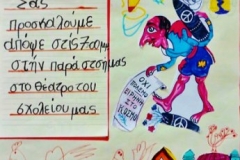 Σας
προσκαλούμε
απόψε στις 7:00μμ
στην παράστασή μας
στο θέατρο του
σχολείου μας
ΟΧΙ
ΠΟΛΕΜΟ
ΕΙΡΗΝΗ
ΣΤΟ
ΚΟΣΜΟ